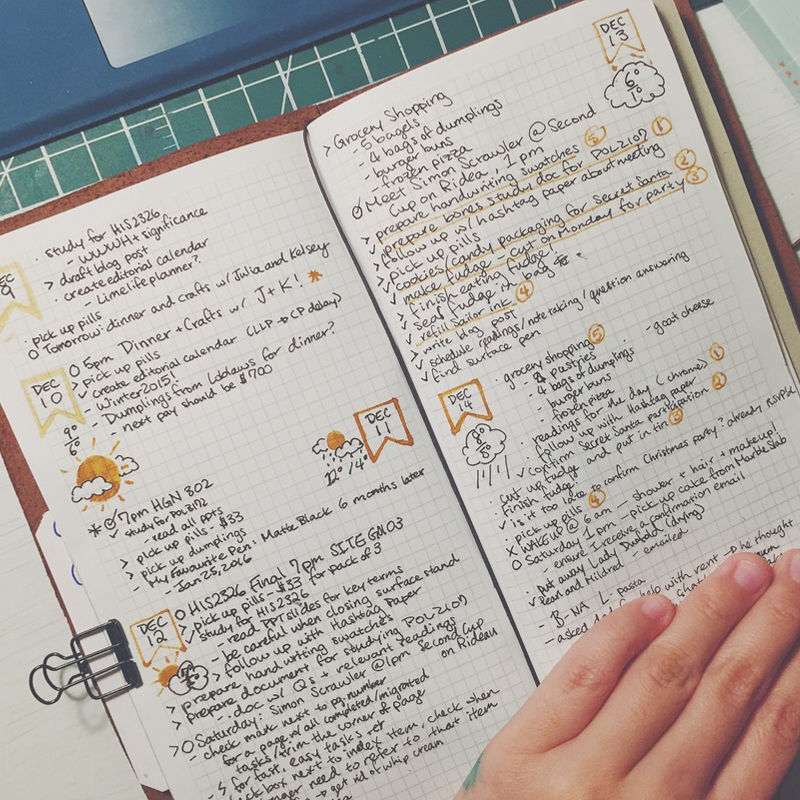 DEC 9
· study for HIS2326
- WWWH + significance
> draft blog post
· create editorial calendar
- Limelifeplanner?
· pick up pills
O Tomorrow: dinner and crafts w/ Julia and Kelsey
DEC 10
O 5pm Dinner + Crafts w/ J+K!
> pick up pills
✓ create editorial calendar (LLP → CP delay)
- Winter 2015
- Dumplings from Loblaws for dinner?
- next pay should be $1700
DEC 11
12° / 4°
* 7pm HGN 302
✓ study for POL3172
- read all ppts
> pick up pills - $33
> pick up dumplings
- My Favourite Pen: Matte Black 6 months later
- Jan 25, 2016
DEC 12
O HIS2326 Final 7pm SITE GM03
> pick up pills - $33 for pack of 3
✓ study for HIS2326
- read PPT slides for key terms
- be careful when closing surface stand
> follow up with Hashtag Paper
> prepare handwriting swatches
> prepare document for studying POL2107
- doc w/ Qs + relevant readings
> O Saturday: Simon Scrawler @ 1pm Second Cup on Rideau
- check mark next to pg. number
for a page w/ all completed/migrated
tasks/trim the corner of page
- for fast, easy tasks
box next to index item, check when
need to refer to that item
→ get rid of whip cream
DEC 13
6°
1°
> Grocery Shopping
- 5 bagels
- 4 bags of dumplings
- burger buns
- frozen pizza
Meet Simon Scrawler @ Second
Cup on Rideau, 1 pm
> prepare handwriting swatches 5
✓ prepare bones study doc for POL2107 1
> follow up w/ hashtag paper about meeting
> pick up pills
✓ cookies/candy packaging for Secret Santa 2
✓ make fudge - cut on Monday for party 3
> finish eating fudge!
✓ seal fudge in bag
✓ refill Sailor ink 4
> write blog post
✓ schedule readings/note taking/question answering
✓ find surface pen
DEC 14
8°
5°
· grocery shopping 5
- pastries
- goat cheese
- 4 bags of dumplings
- burger buns
- frozen pizza
· readings for the day (chrome) 1
· follow up with Hashtag paper
✓ confirm Secret Santa participation 2
· cut up fudge and put in tin 3
· finish fudge
✓ is it too late to confirm Christmas party? already RSVP'd
· pick up pills 4
X WAKE UP @ 6 am - shower + hair + makeup!
O Saturday 1pm - pick up cake from Marble Slab
- ensure I receive a confirmation email
✓ put away Lady Dudald (drying)
✓ Pearl and Mildred - emailed
- pasta
- asked dad for help with rent → he thought